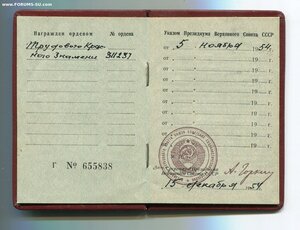 www.FORUMS-SU.com
Награжден орденом № ордена
Трудового Крас-
ного Знамени 311237
Г № 655838
Указом Президиума Верховного Совета СССР
от 5 ноября 1954 г.
от 19 г.
от 19 г.
от 19 г.
от 19 г.
от 19 г.
от 19 г.
от 19 г.
А. Горкин
15 декабря 1954 г.